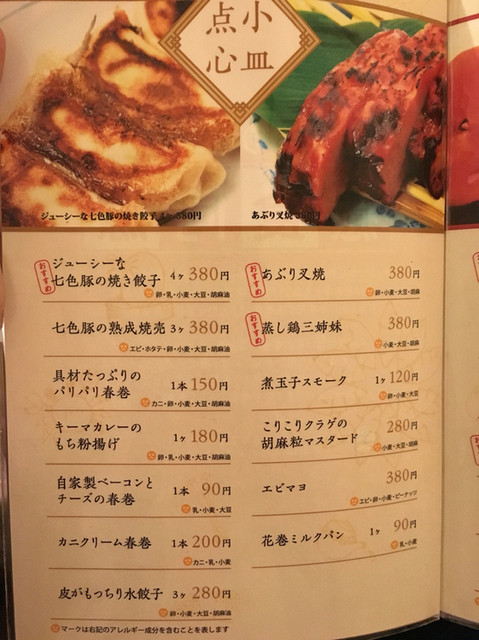 小皿
点心
ジューシーな七色豚の焼き餃子 4ヶ 380円
あぶり叉焼 380円
おすすめ
ジューシーな
七色豚の焼き餃子 4ヶ 380円
卵・乳・小麦・大豆・胡麻油
七色豚の熟成焼売 3ヶ 380円
エビ・ホタテ・卵・小麦・大豆・胡麻油
具材たっぷりの
パリパリ春巻 1本 150円
カニ・卵・小麦・大豆・胡麻油
キーマカレーの
もち粉揚げ 1ヶ 180円
卵・乳・小麦・大豆・胡麻油
自家製ベーコンと
チーズの春巻 1本 90円
乳・小麦・大豆
カニクリーム春巻 1本 200円
カニ・乳・小麦
皮がもっちり水餃子 3ヶ 280円
卵・小麦・大豆・胡麻油
マークは右記のアレルギー成分を含むことを表します
おすすめ
あぶり叉焼 380円
卵・小麦・大豆・胡麻
おすすめ
蒸し鶏三姉妹 380円
小麦・大豆・胡麻
煮玉子スモーク 1ヶ 120円
卵・小麦・大豆
こりこりクラゲの
胡麻粒マスタード 280円
小麦・大豆・胡麻
エビマヨ 380円
エビ・卵・小麦・ピーナッツ
花巻ミルクパン 1ヶ 90円
乳・小麦